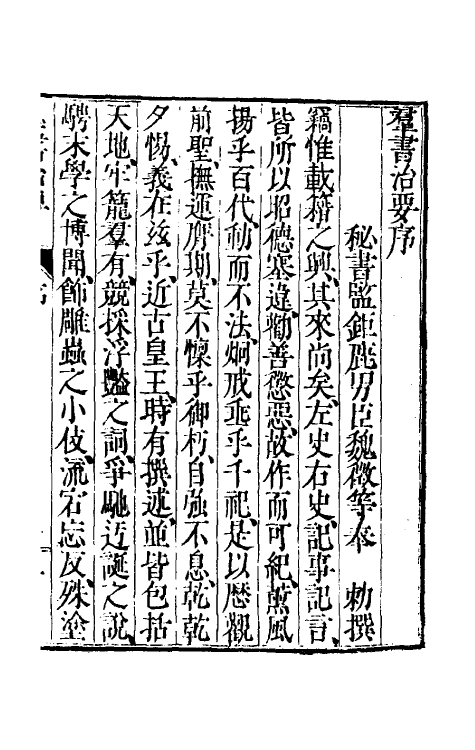 羣書治要序
秘書監鉅鹿男臣魏徵等奉 勅撰
竊惟載籍之興、其來尚矣、左史右史、記事記言、
皆所以昭德塞違、勸善懲惡、故作而可紀、薰風
揚乎百代、動而不法、炯戒垂乎千祀、是以歷觀
前聖、撫運膺期、莫不懍乎御朽、自強不息、乾乾
夕惕、義在玆乎、近古皇王、時有撰述、並皆包括
天地、牢籠羣有、競採浮豔之詞、爭馳迃誕之說、
騁末學之博聞、飾雕蟲之小伎、流宕忘反、殊塗